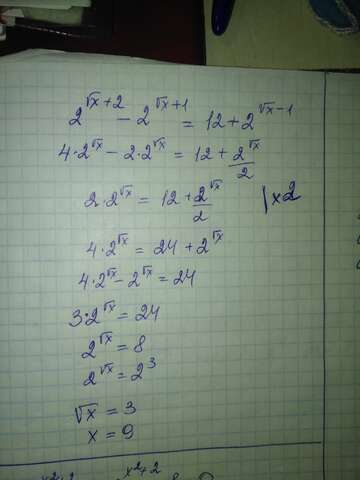 2^(√x+2) − 2^(√x+1) = 12 + 2^(√x−1)
4·2^√x − 2·2^√x = 12 + 2^√x/2
2·2^√x = 12 + 2^√x/2 |×2
4·2^√x = 24 + 2^√x
4·2^√x − 2^√x = 24
3·2^√x = 24
2^√x = 8
2^√x = 2^3
√x = 3
x = 9